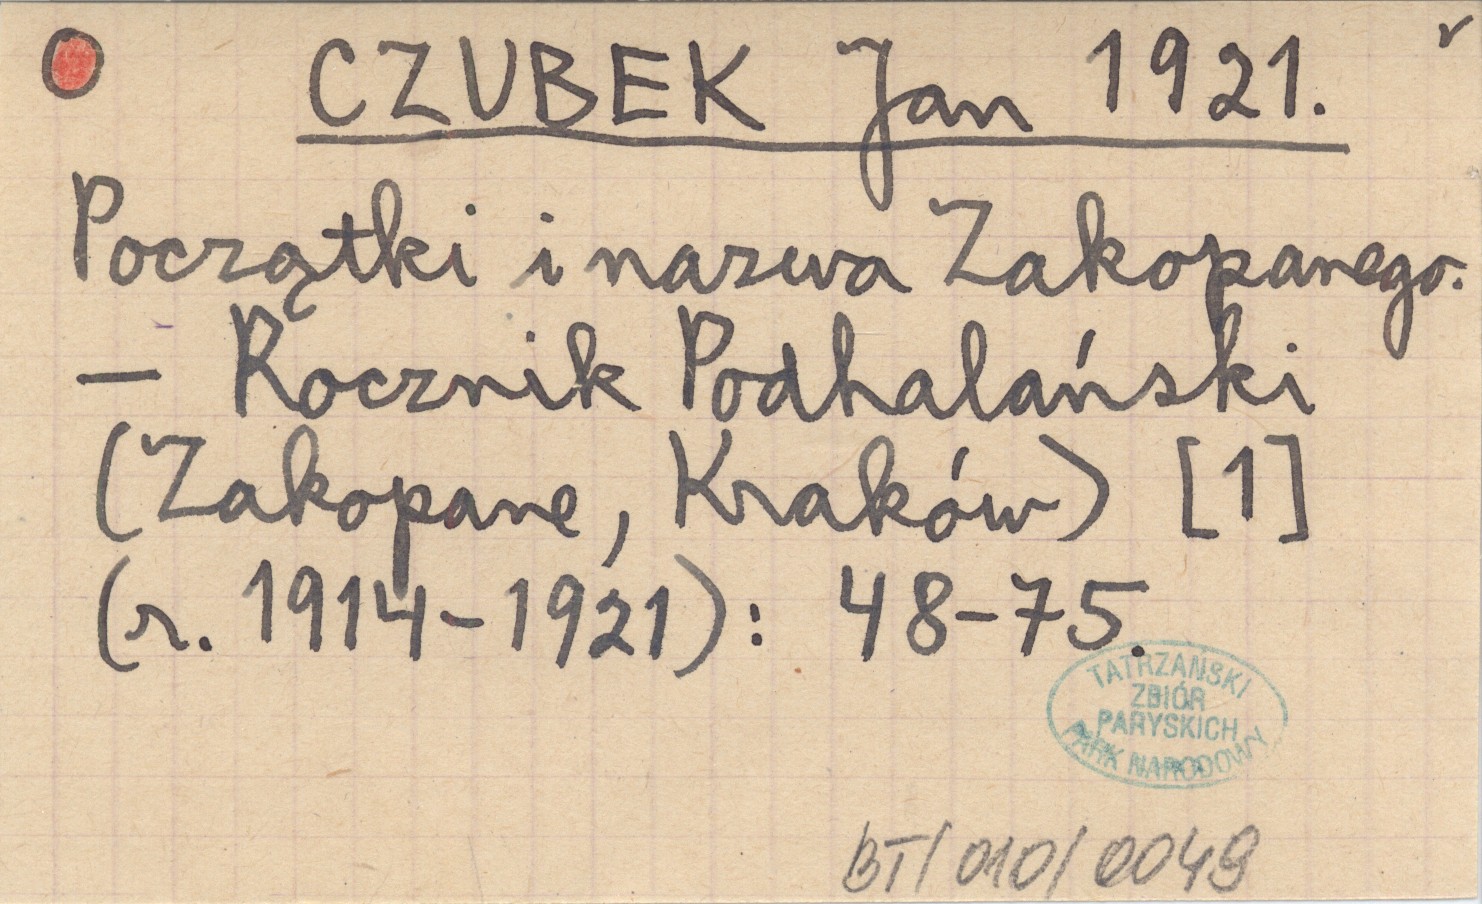 CZUBEK Jan 1921.
Początki i nazwa Zakopanego.
— Rocznik Podhalański
(Zakopane, Kraków) [1]
(r. 1914-1921): 48-75.
TATRZAŃSKI
ZBIÓR
PARYSKICH
PARK NARODOWY
BT/010/0049